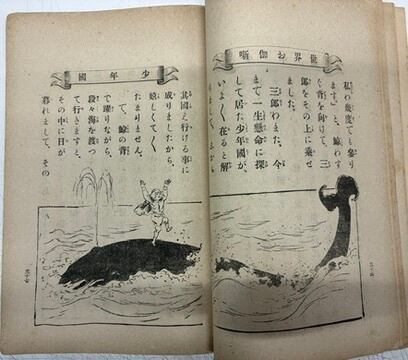 世界お伽噺
私わ幾度でも參り
ます。」と、鯨わす
ぐ背を向けて、三
郎をその上に乗せ
ました。
三郎わまた、今
まで一生懸命に探
して居た少年國が、
いよ〱在ると解
少年國
其國え行ける事に
成りましたから、
嬉しくて〱
たまりません。
で、鯨の背
で躍りながら、
段々海を渡つ
て行きますと、
その中に日が
暮れまして、その